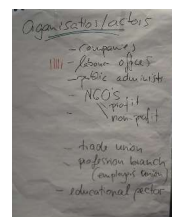 Organisation/actors
- companies
- labour offices
- public administ.
- NGO's
- profit
- non-profit
- trade union
- profession branch
(employers union)
- educational sector